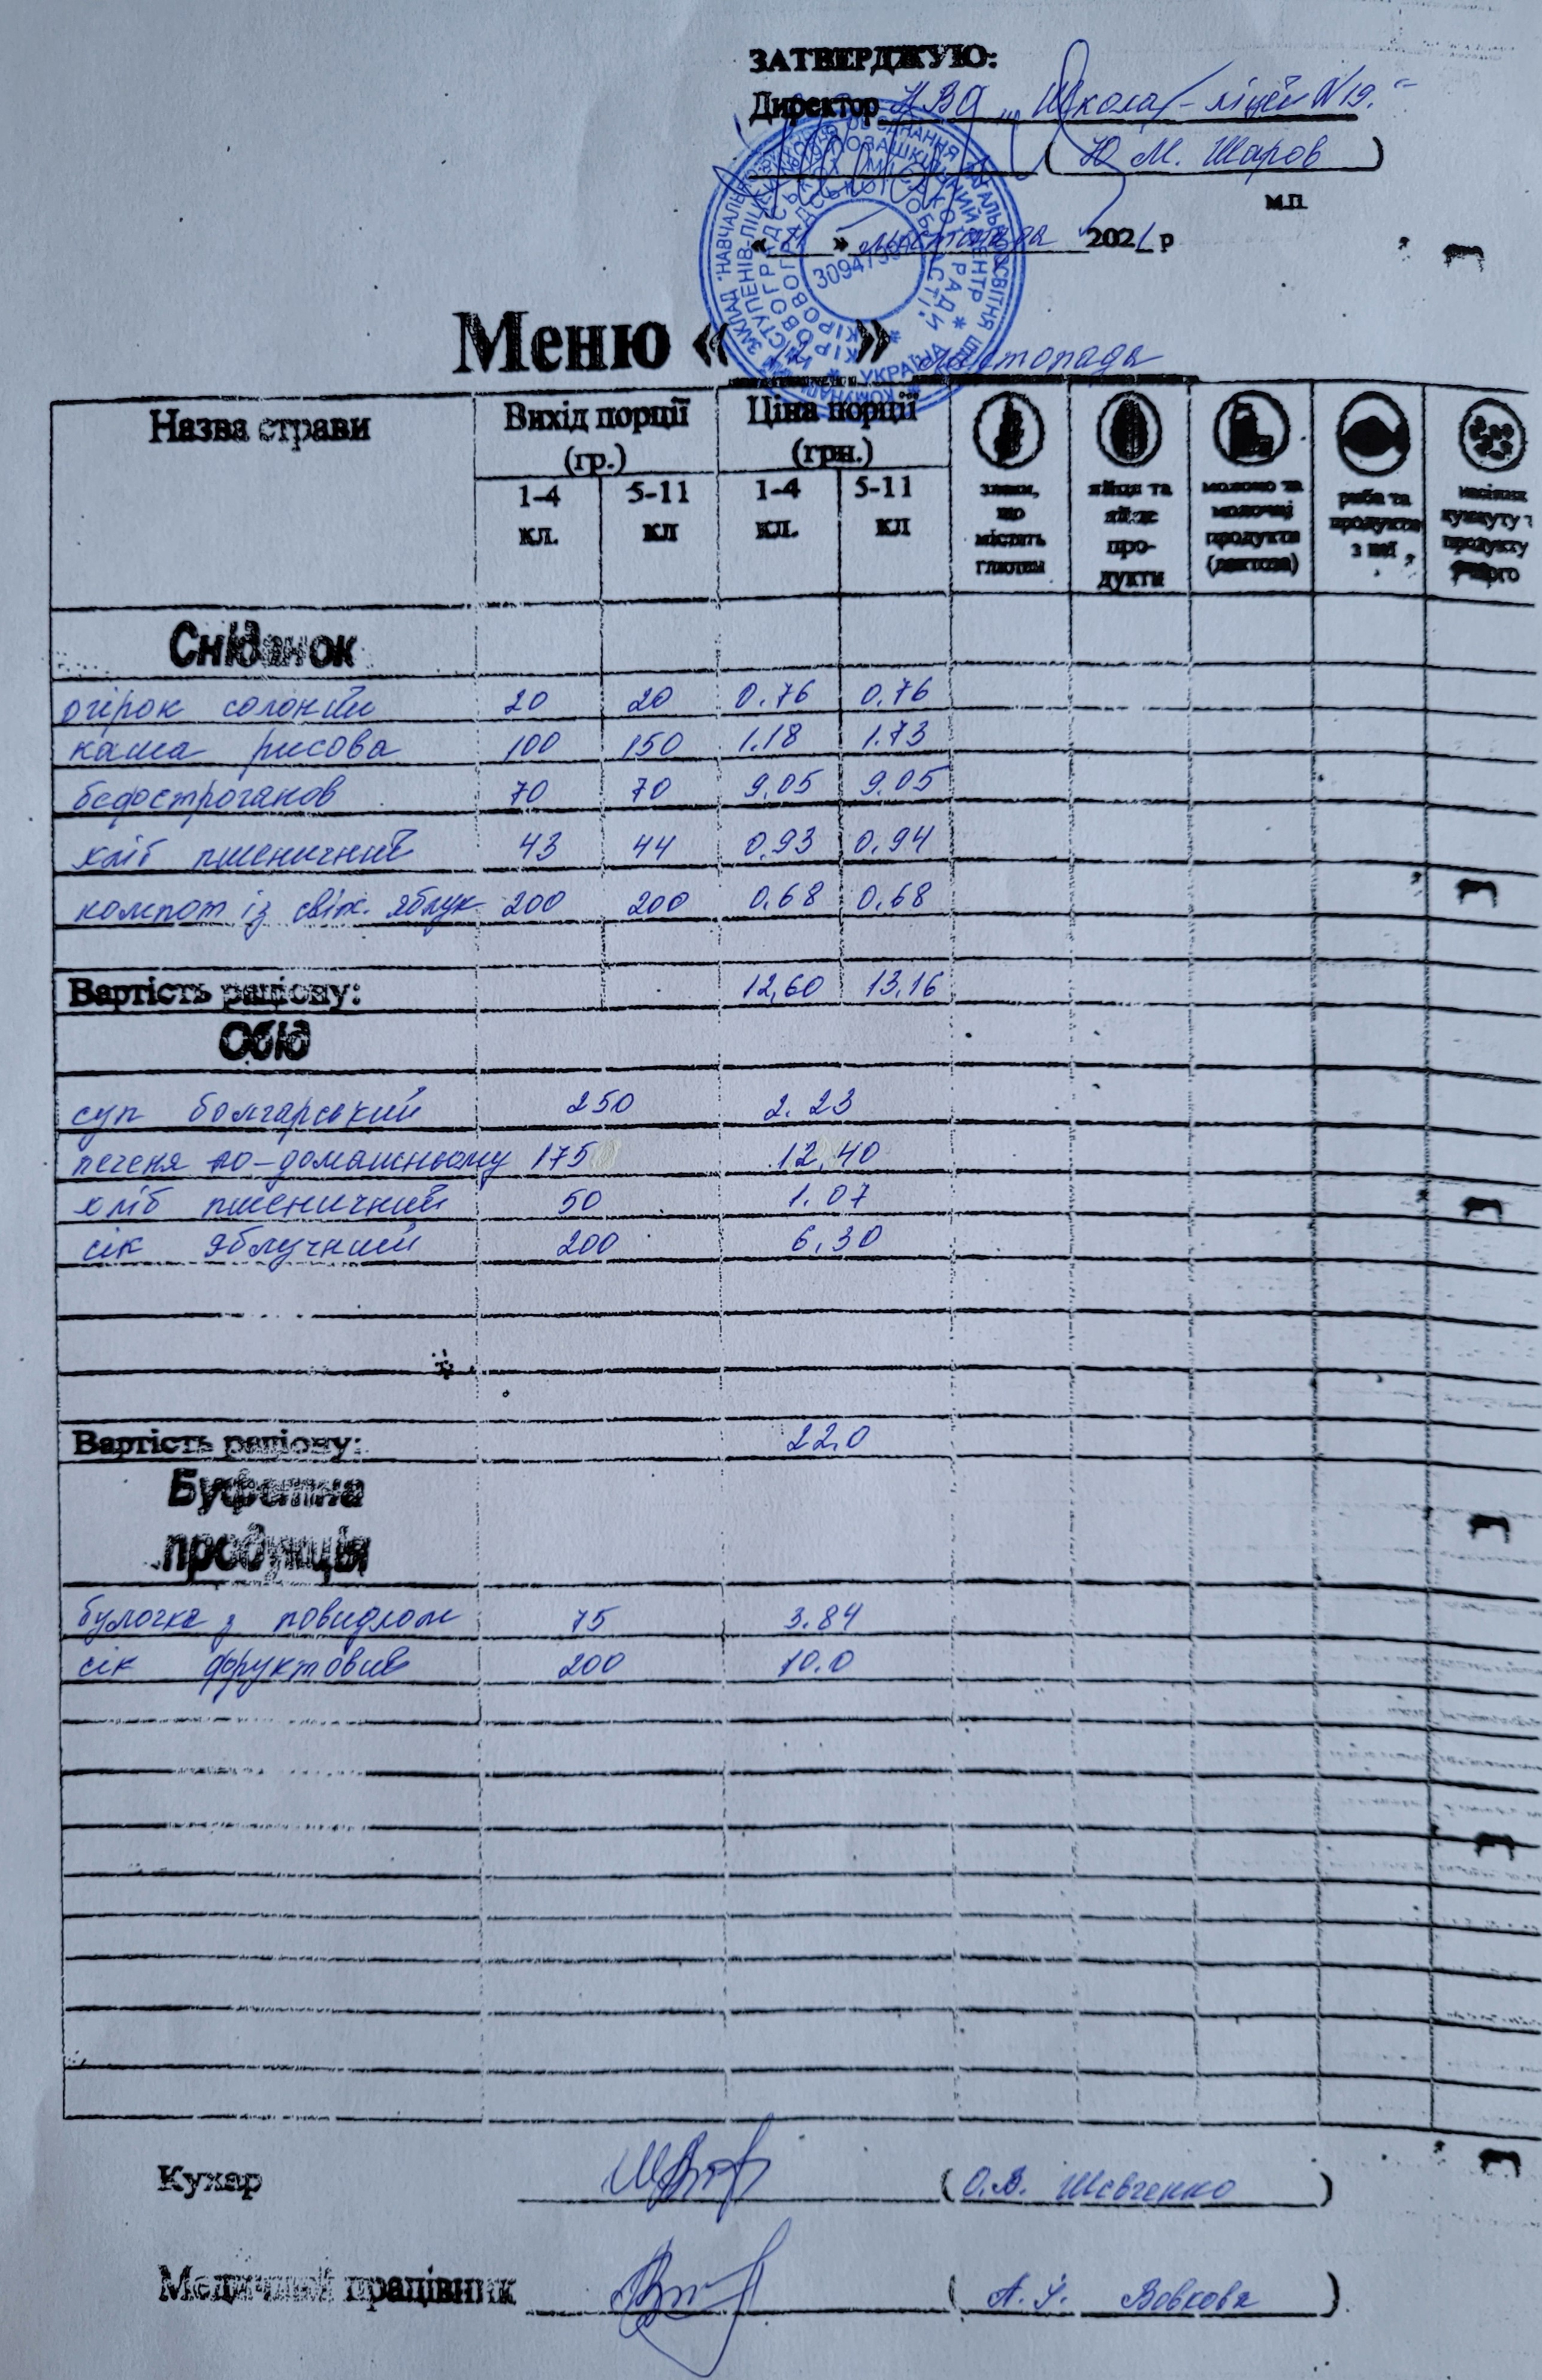 ЗАТВЕРДЖУЮ:
Директор НВО „Школа-ліцей №19"
( Ю М. Шаров )
м.п.
« » листопада 2021 р
Меню « 12 » листопада
Назва страви Вихід порції (гр.) Ціна порції (грн.)
1-4 кл. 5-11 кл 1-4 кл. 5-11 кл
злаки, що містять глютен
яйця та яйце про-дукти
молоко та молочні продукти (лактоза)
риба та продукти з неї
насіння кунжуту продукту
Сніданок
огірок солоний 20 20 0.76 0.76
каша рисова 100 150 1.18 1.73
бефостроганов 70 70 9,05 9.05
хліб пшеничний 43 44 0,93 0,94
компот із свіж. яблук 200 200 0,68 0,68
Вартість раціону: 12,60 13,16
Обід
суп болгарський 250 2.23
печеня по-домашньому 175 12,40
хліб пшеничний 50 1.07
сік яблучний 200 6,30
Вартість раціону: 22.0
Буфетна
продукція
булочка з повидлом 75 3.84
сік фруктовий 200 10.0
Кухар ( О.В. Шевченко )
Медичний працівник ( Вовкова )